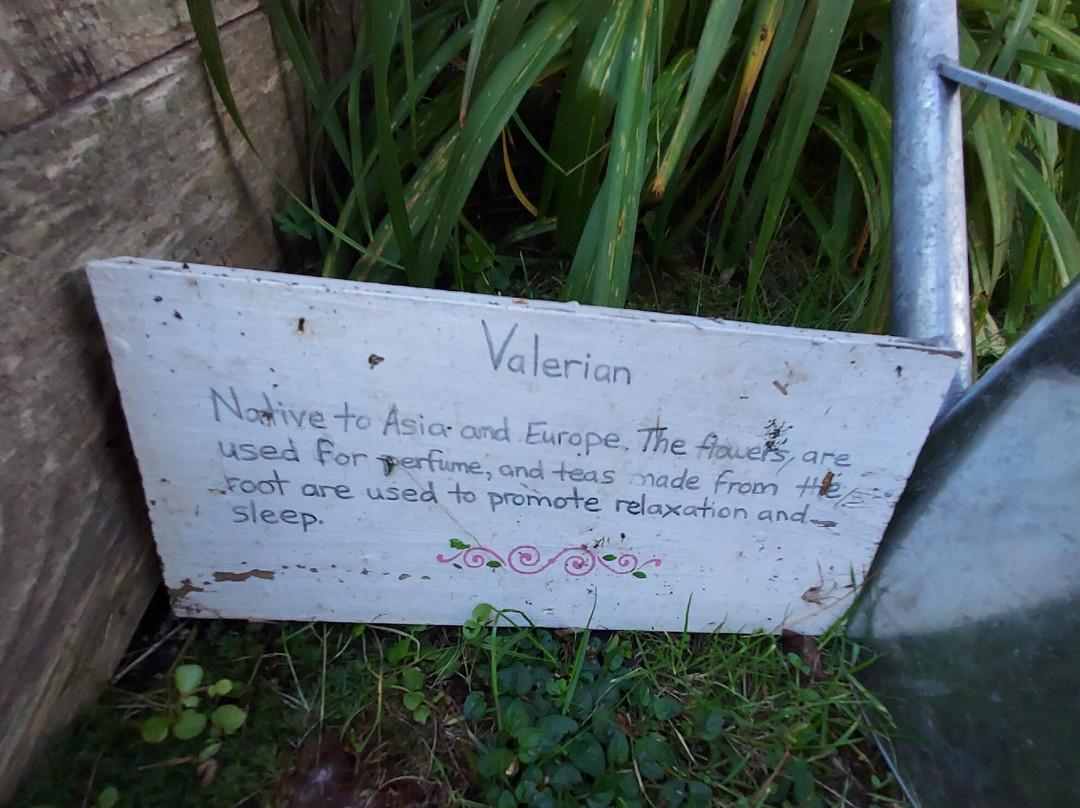 Valerian
Native to Asia and Europe. The flowers, are
used for perfume, and teas made from the
root are used to promote relaxation and
sleep.